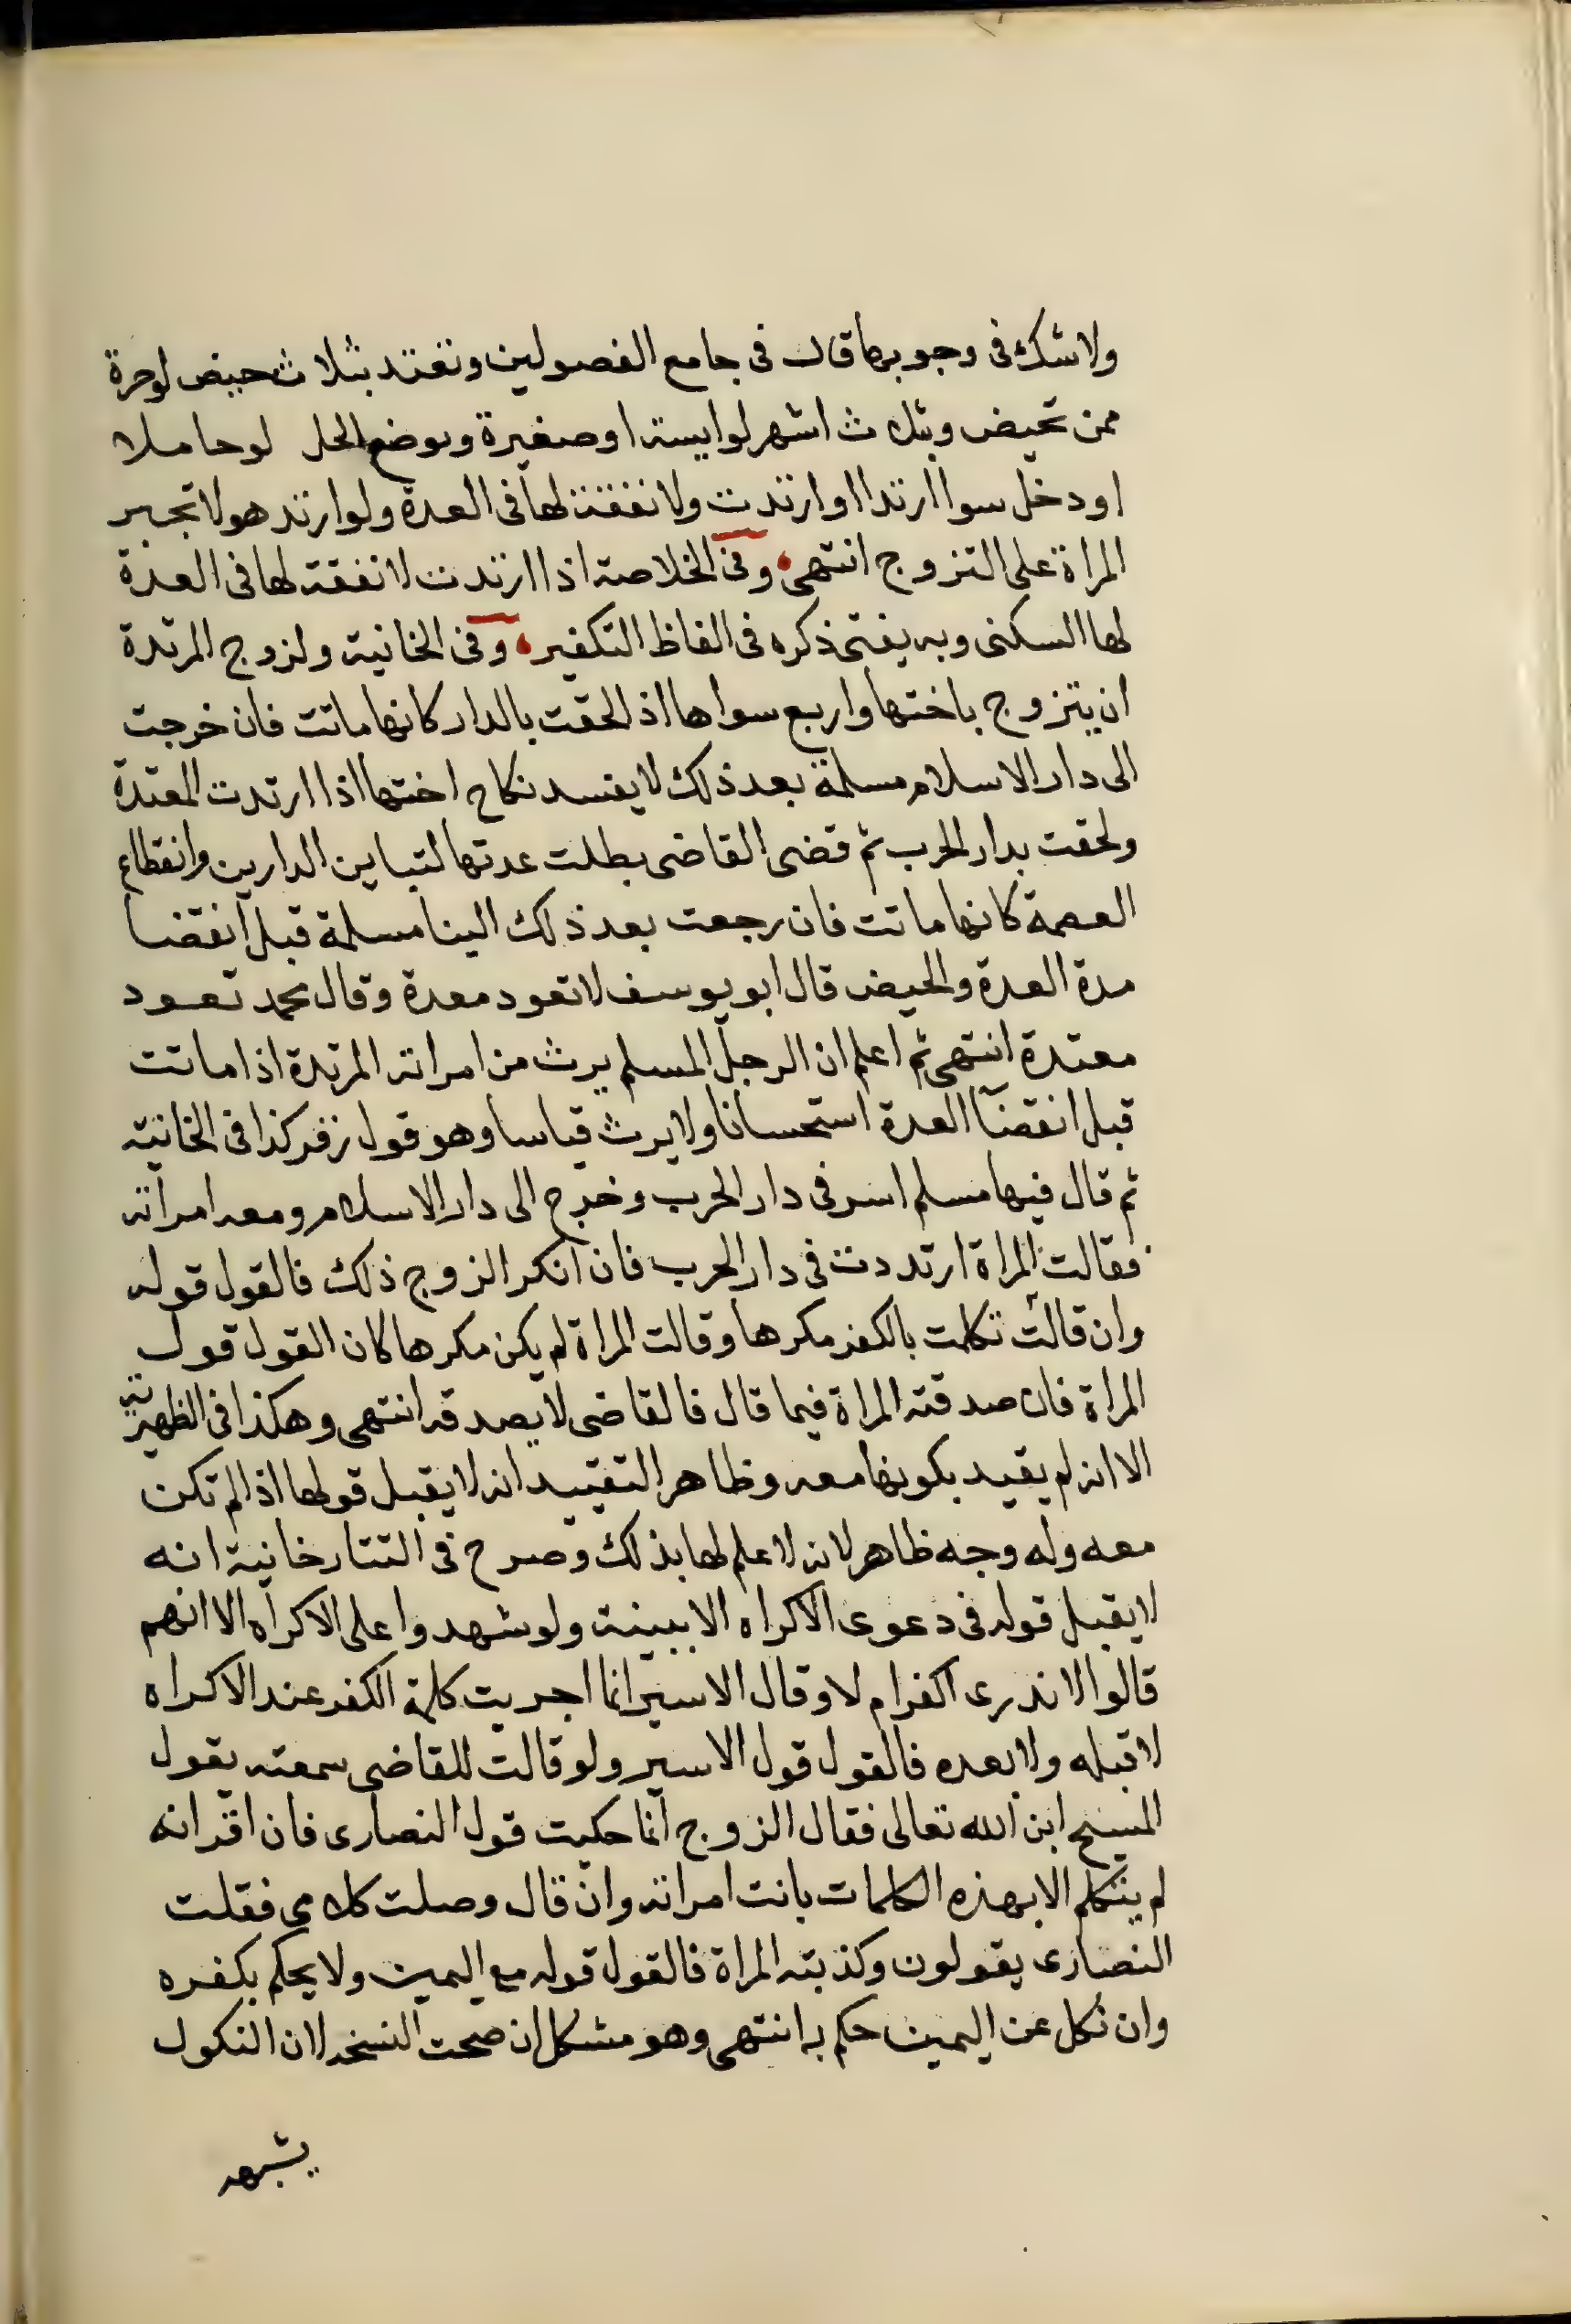 ولا شك فى وجوبها قال فى جامع الفصولين وتعتد بثلاث حيض لو حرة
ممن تحيض وبثلاث اشهر لو ايسة او صغيرة وبوضع الحمل لو حاملا
او دخل سوا ارتد او ارتدت ولا نفقة لها فى العدة ولو ارتد هو لا تجبر
المراة على التزوج انتهى وفى الخلاصة اذا ارتدت لا نفقة لها فى العدة
لها السكنى وبه يفتى ذكره فى الفاظ التكفير وفى الخانية ولزوج المرتدة
ان يتزوج باختها واربع سواها اذ لحقت بالدار كانها ماتت فان خرجت
الى دار الاسلام مسلمة بعد ذلك لا يفسد نكاح اختها اذا ارتدت المعتدة
ولحقت بدار الحرب ثم قضى القاضى بطلت عدتها لتباين الدارين وانقطاع
العصمة كانها ماتت فان رجعت بعد ذلك الينا مسلمة قبل انقضا
مدة العدة والحيض قال ابو يوسف لا تعود معدة وقال محمد تعود
معتدة انتهى ثم اعلم ان الرجل المسلم يرث من امراته المرتدة اذا ماتت
قبل انقضآ العدة استحسانا ولا يرث قياسا وهو قول زفر كذا فى الخانية
ثم قال فيها مسلم اسر فى دار الحرب وخرج الى دار الاسلام ومعه امراته
فقالت المراة ارتددت فى دار الحرب فان انكر الزوج ذلك فالقول قوله
وان قالت تكلمت بالكفر مكرها وقالت المراة لم يكن مكرها كان القول قول
المراة فان صدقته المراة فيما قال فالقاضى لا يصدقه انتهى وهكذا فى الظهيرية
الا انه لم يقيد بكونها معه وظاهر التقييد انه لا يقبل قولها اذا لم تكن
معه وله وجه ظاهر لانه لا علم لها بذلك وصرح فى التتارخانية انه
لا يقبل قوله فى دعوى الاكراه الا ببينة ولو شهدوا على الاكراه الا انهم
قالوا لا ندرى اكفر ام لا وقال الاسير انما اجريت كلمة الكفر عند الاكراه
لا قبله ولا بعده فالقول قول الاسير ولو قالت للقاضى سمعته يقول
المسيح ابن الله تعالى فقال الزوج انما حكيت قول النصارى فان اقر انه
لم يتكلم الا بهذه الكلمات بانت امراته وان قال وصلت كلامى فقلت
النصارى يقولون وكذبته المراة فالقول قوله مع اليمين ولا يحكم بكفره
وان نكل عن اليمين حكم به انتهى وهو مشكل ان صحت النسخة لان النكول
يشبهه